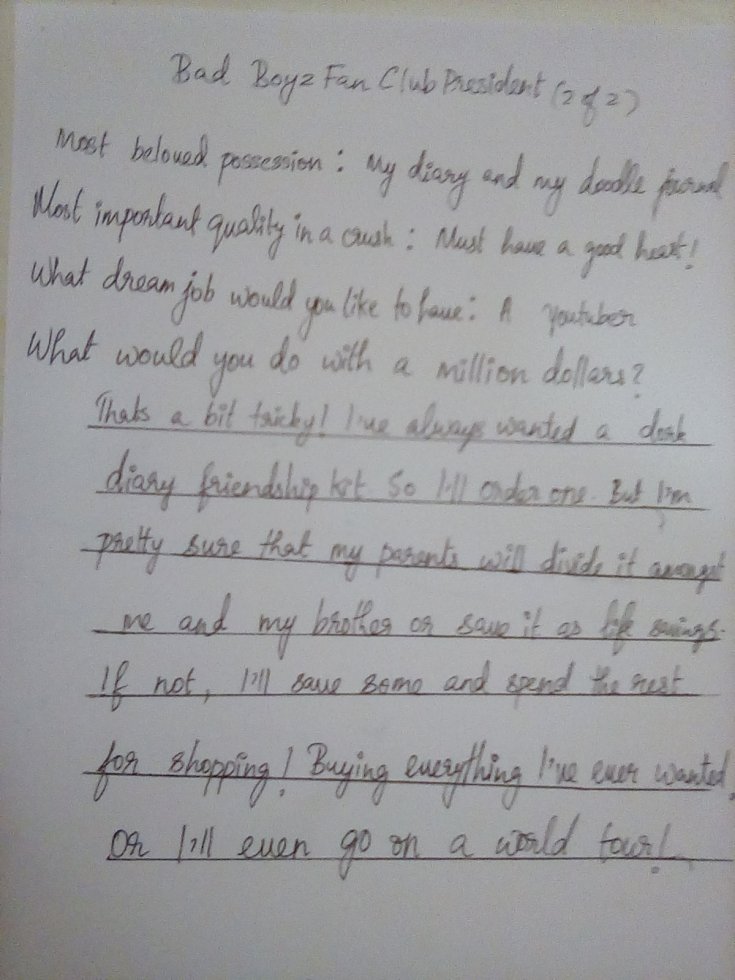 Bad Boyz Fan Club President (2 of 2)
Most beloved possession : My diary and my doodle journal
Most important quality in a crush : Must have a good heart!
What dream job would you like to have : A youtuber
What would you do with a million dollars?
Thats a bit tricky! I've always wanted a dork
diary friendship kit. So I'll order one. But I'm
pretty sure that my parents will divide it amongst
me and my brother or save it as life savings.
If not, I'll save some and spend the rest
for shopping! Buying everything I've ever wanted.
Or I'll even go on a world tour!